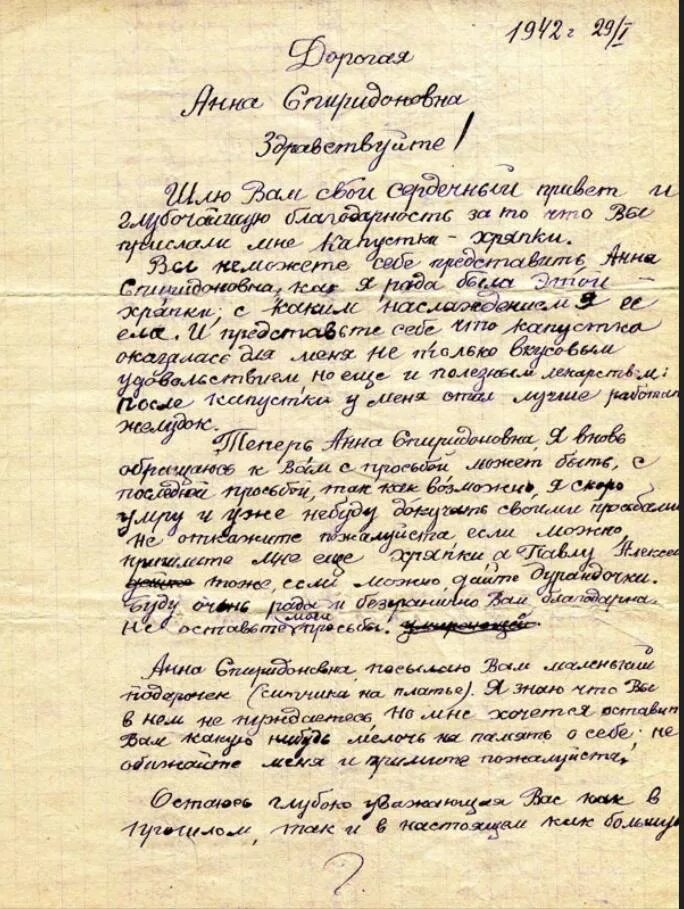 1942 г 29/I
Дорогая
Анна Спиридоновна
Здравствуйте!
Шлю Вам свой сердечный привет и
глубочайшую благодарность за то что Вы
прислали мне капустки - хряпки.
Вы неможете себе представить, Анна
Спиридоновна, как я рада была этой
хряпки, с каким наслаждением я ее
ела. И представьте себе что капустка
оказалась для меня не только вкусовым
удовольствием но еще и полезным лекарством:
после капустки у меня стал лучше работат
желудок.
Теперь Анна Спиридоновна, я вновь
обращаюсь к Вам с просьбой может быть, с
последней просьбой, так как возможно, я скоро
умру и уже небуду докучать своими
не откажите пожалуйста если можно,
пришлите мне еще хряпки а Павлу Алексее
тоже, если можно дайте дурандочки.
Буду очень рада и безгранично Вам благодарна.
Не оставьте мои просьбы. умирающей
Анна Спиридоновна, посылаю Вам маленький
подарочек (ситчика на платье). Я знаю что Вы
в нем не нуждаетесь, но мне хочется оставит
Вам какую нибудь мелочь на память о себе: не
обижайте меня и примите пожалуйста!
Остаюсь глубоко уважающая Вас как в
прошлом, так и в настоящем как большую
?